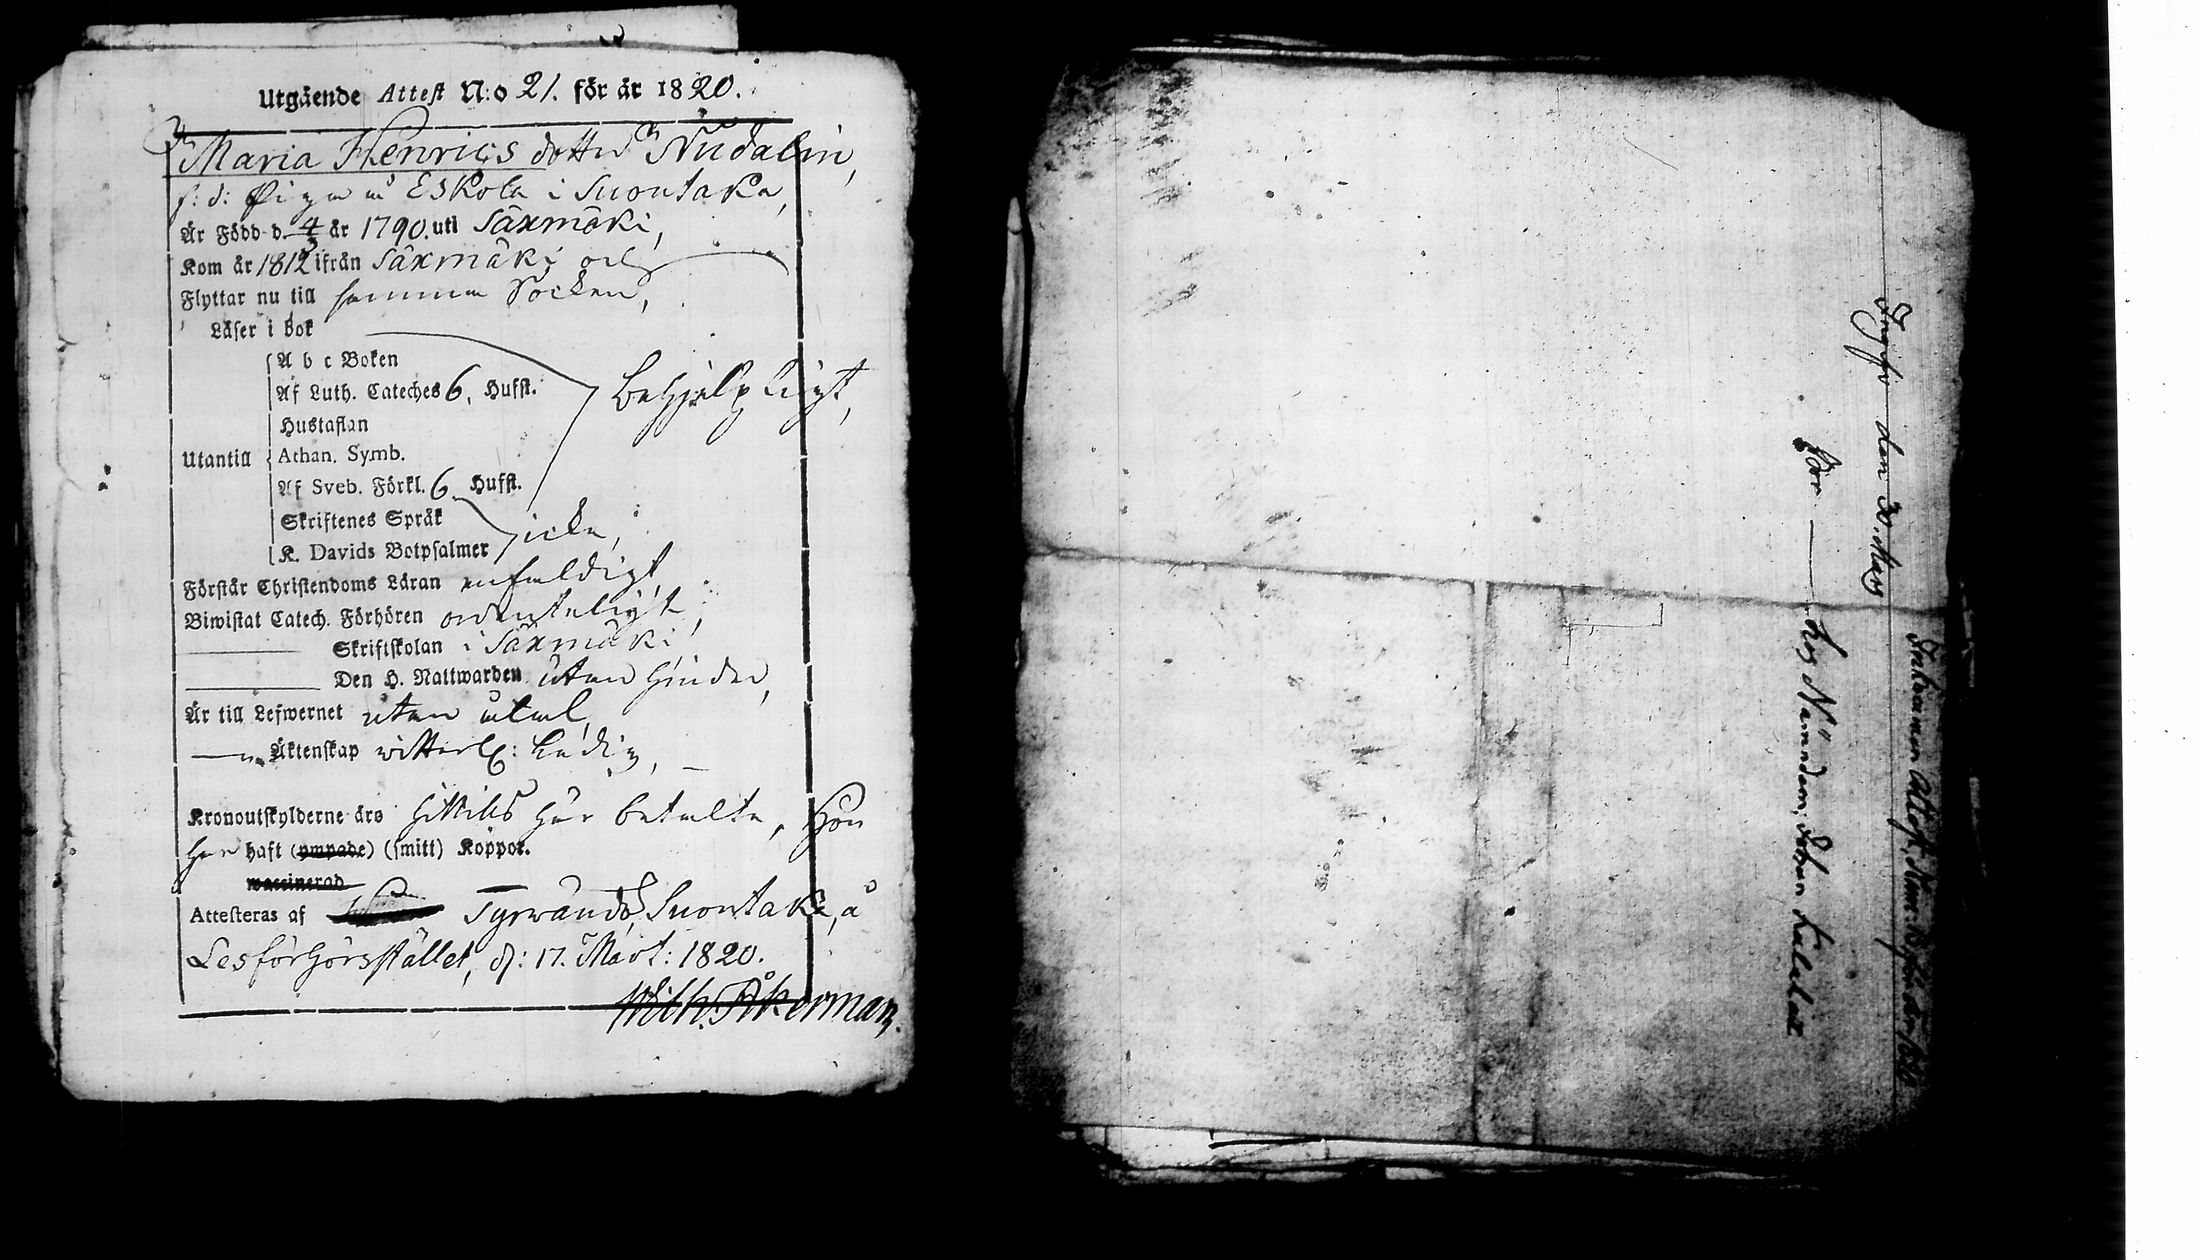 Utgående Attest N:o 21. för år 1820.
Maria Henrics dotter Nudalin,
f: d: Piga å Eskola i Suontaka,
Är Född d. 4/3 år 1790. uti Säxmäki,
Kom år 1812 ifrån Säxmäki och
Flyttar nu till samma Socken,
Läser i bok
A b c Boken
Af Luth. Cateches 6, Hufst. Behjelpligt,
Hustaflan
Utantill Athan. Symb.
Af Sveb. Förkl. 6 Hufst.
Skriftenes Språk
K. Davids Botpsalmer icke,
Förstår Christendoms Läran enfaldigt,
Biwistat Catech. Förhören ordenteligt,
Skriftskolan i Säxmäki,
Den H. Nattwarden utan hinder,
Är till Lefwernet utan åtal,
Äktenskap witterl: Ledig,
Kronoutskylderne äro hittils här betalta, Hon
har haft (ympade) (smitt) Koppor.
waccinerad
Attesteras af Tyrwändö, Suontaka, å
Lesförhörsstället, d: 17. Mart: 1820.
Wilh. Åkerman.
Inkommen Attest, Num: för år
den 30. Maij
för hos Nämndem: Johan